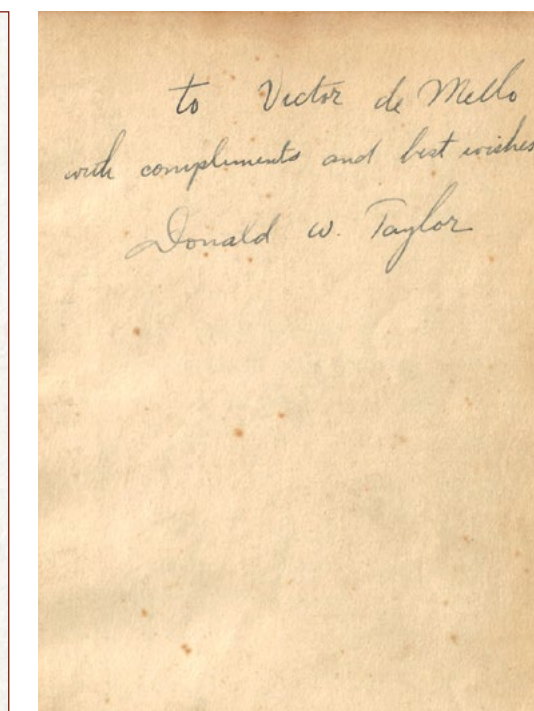 to Victor de Mello
with compliments and best wishes
Donald W. Taylor